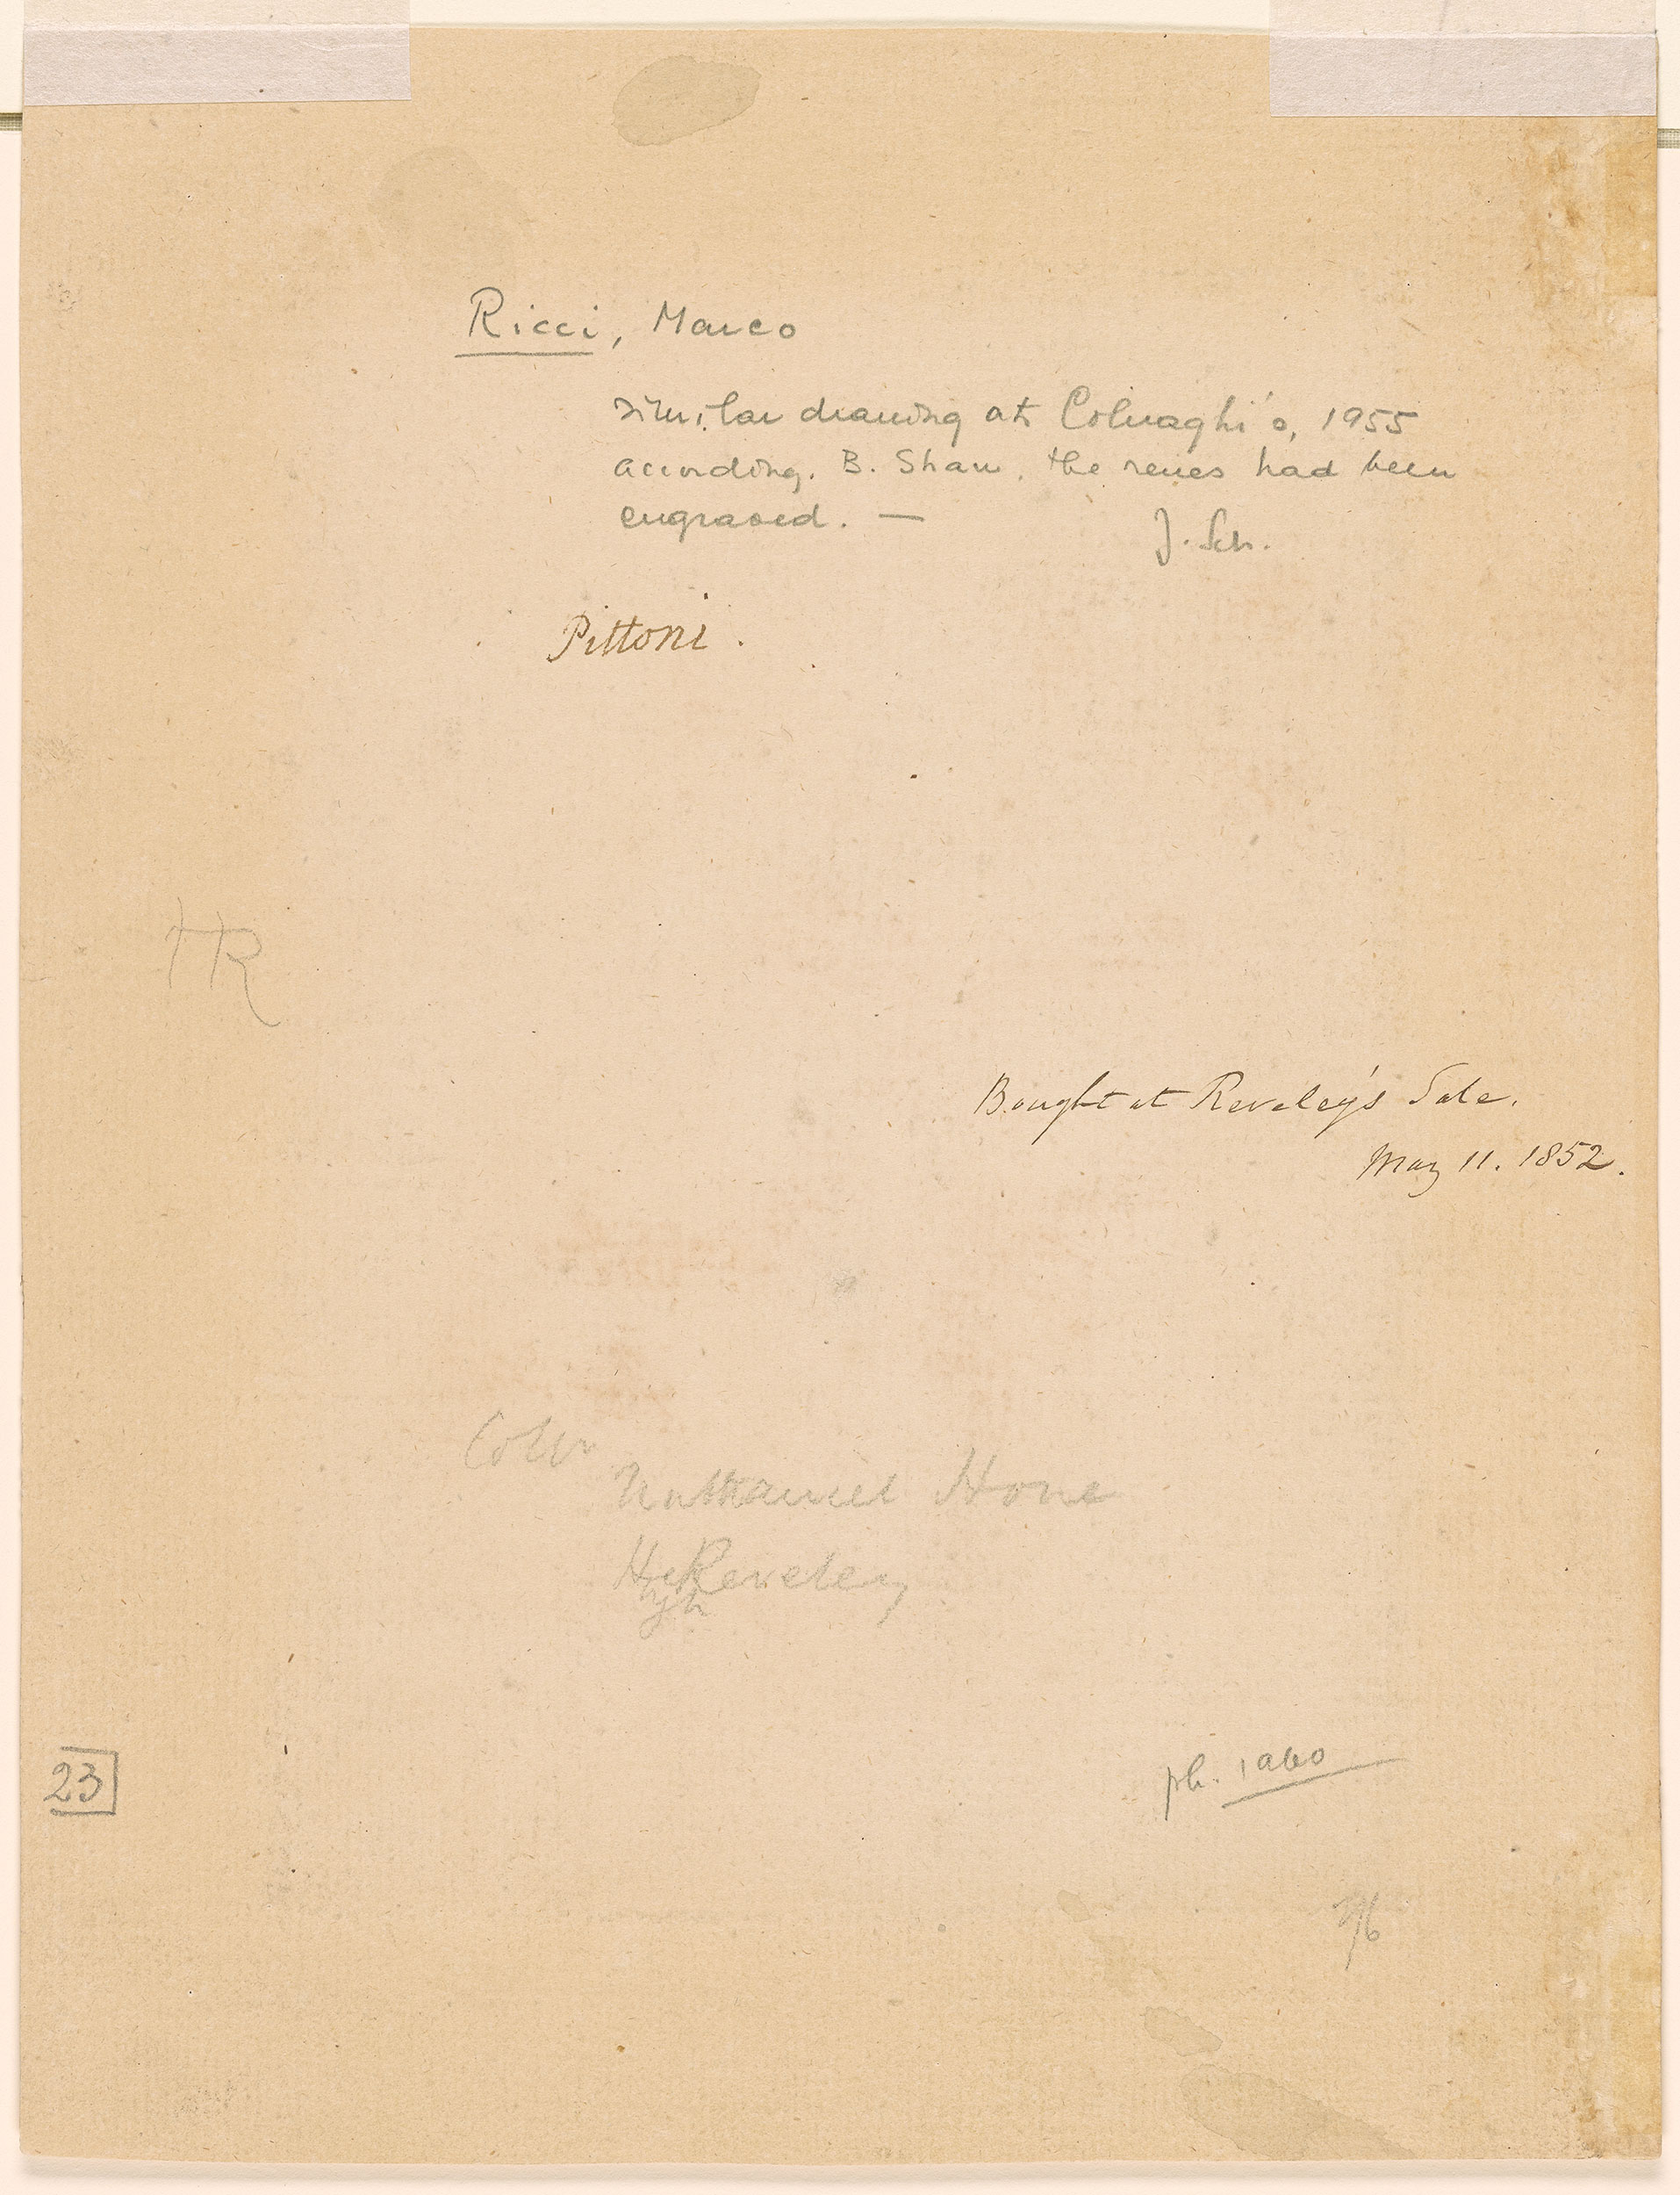 Ricci, Marco
similar drawing at Colnaghi's, 1955
according. B. Shaw, the series had been
engraved. —
J. Sch.
Pittoni.
HR
Bought at Reveley's Sale.
May 11. 1852.
Nathaniel Hone
Reveley
Hugh
23
ph.